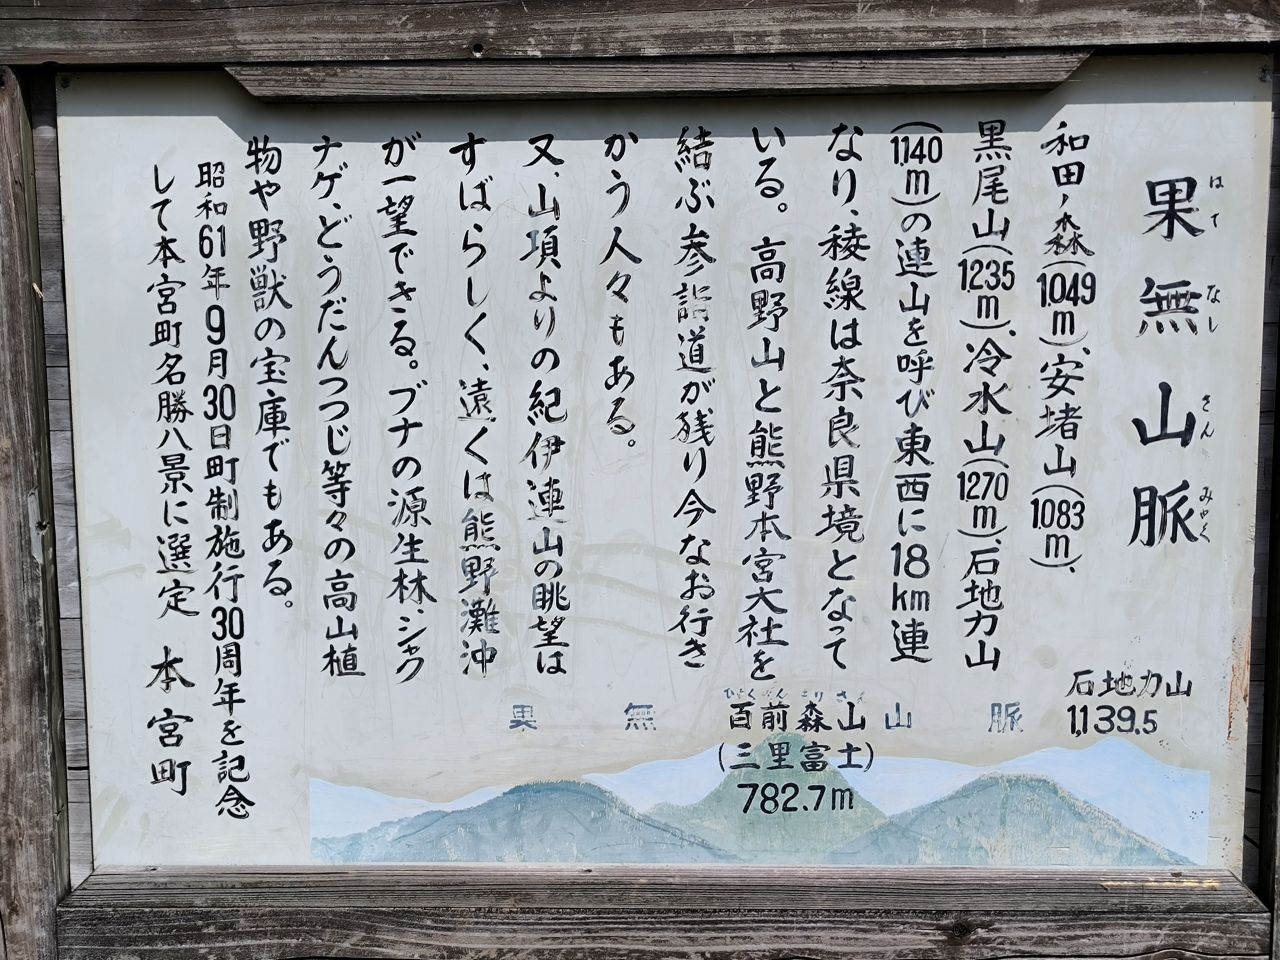 果無山脈
はてなしさんみゃく
和田ノ森(1049m)、安堵山(1083m)、
黒尾山(1235m)、冷水山(1270m)、石地力山
(1140m)の連山を呼び東西に18km連
なり、稜線は奈良県境となって
いる。高野山と熊野本宮大社を
結ぶ参詣道が残り今なお行き
かう人々もある。
又、山項よりの紀伊連山の眺望は
すばらしく、遠くは熊野灘沖
が一望できる。ブナの源生林、シャク
ナゲ、どうだんつつじ等々の高山植
物や野獣の宝庫でもある。
昭和61年9月30日町制施行30周年を記念
して本宮町名勝八景に選定 本宮町
石地力山
1,139.5
果無山脈
ひゃくぜんもりさん
百前森山
(三里富士)
782.7m